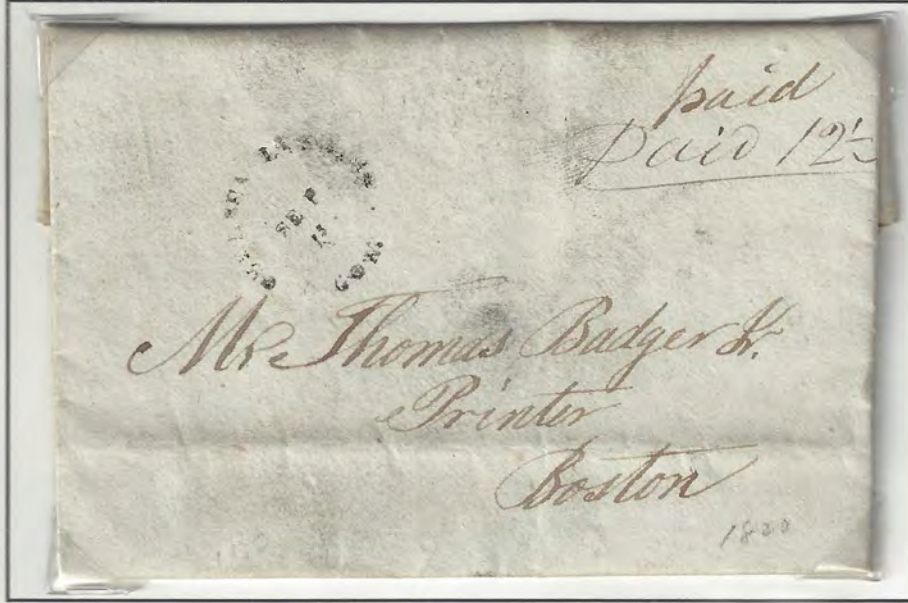 paid
Paid 12½
SEP
CON.
Mr. Thomas Badger Jr.
Printer
Boston